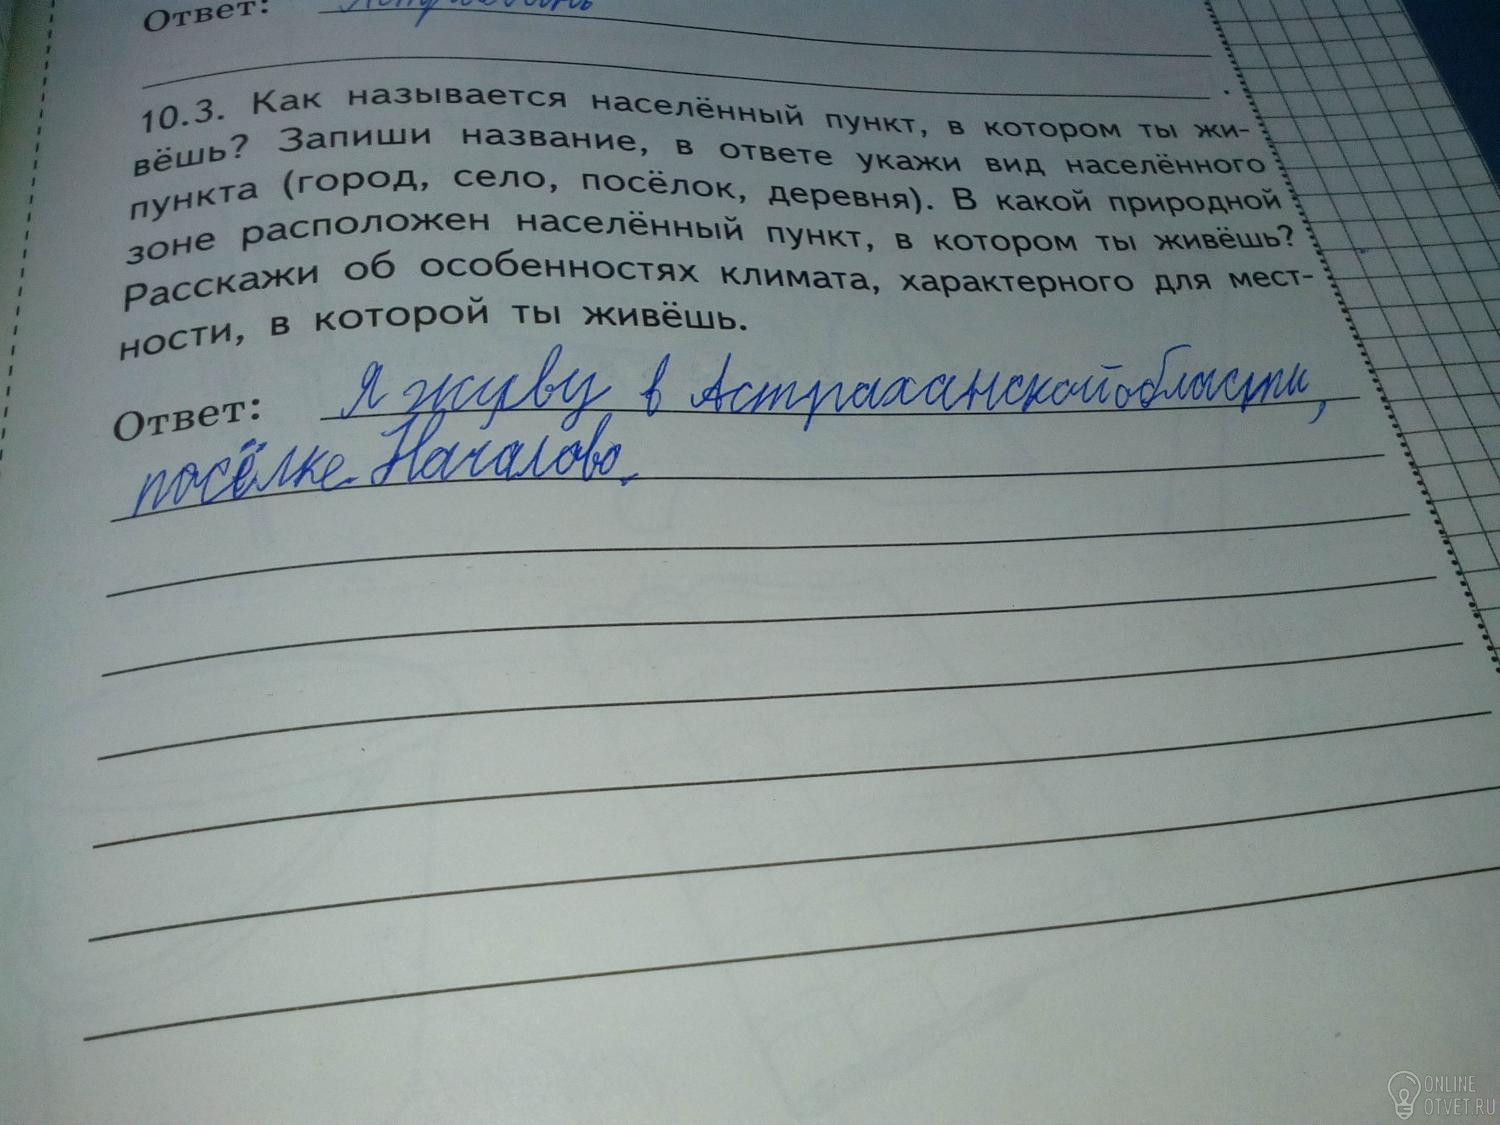 Ответ: Астрахань
10.3. Как называется населённый пункт, в котором ты жи-
вёшь? Запиши название, в ответе укажи вид населённого
пункта (город, село, посёлок, деревня). В какой природной
зоне расположен населённый пункт, в котором ты живёшь?
Расскажи об особенностях климата, характерного для мест-
ности, в которой ты живёшь.
Ответ: Я живу в Астраханской области,
посёлке Началово.
ONLINE
OTVET.RU